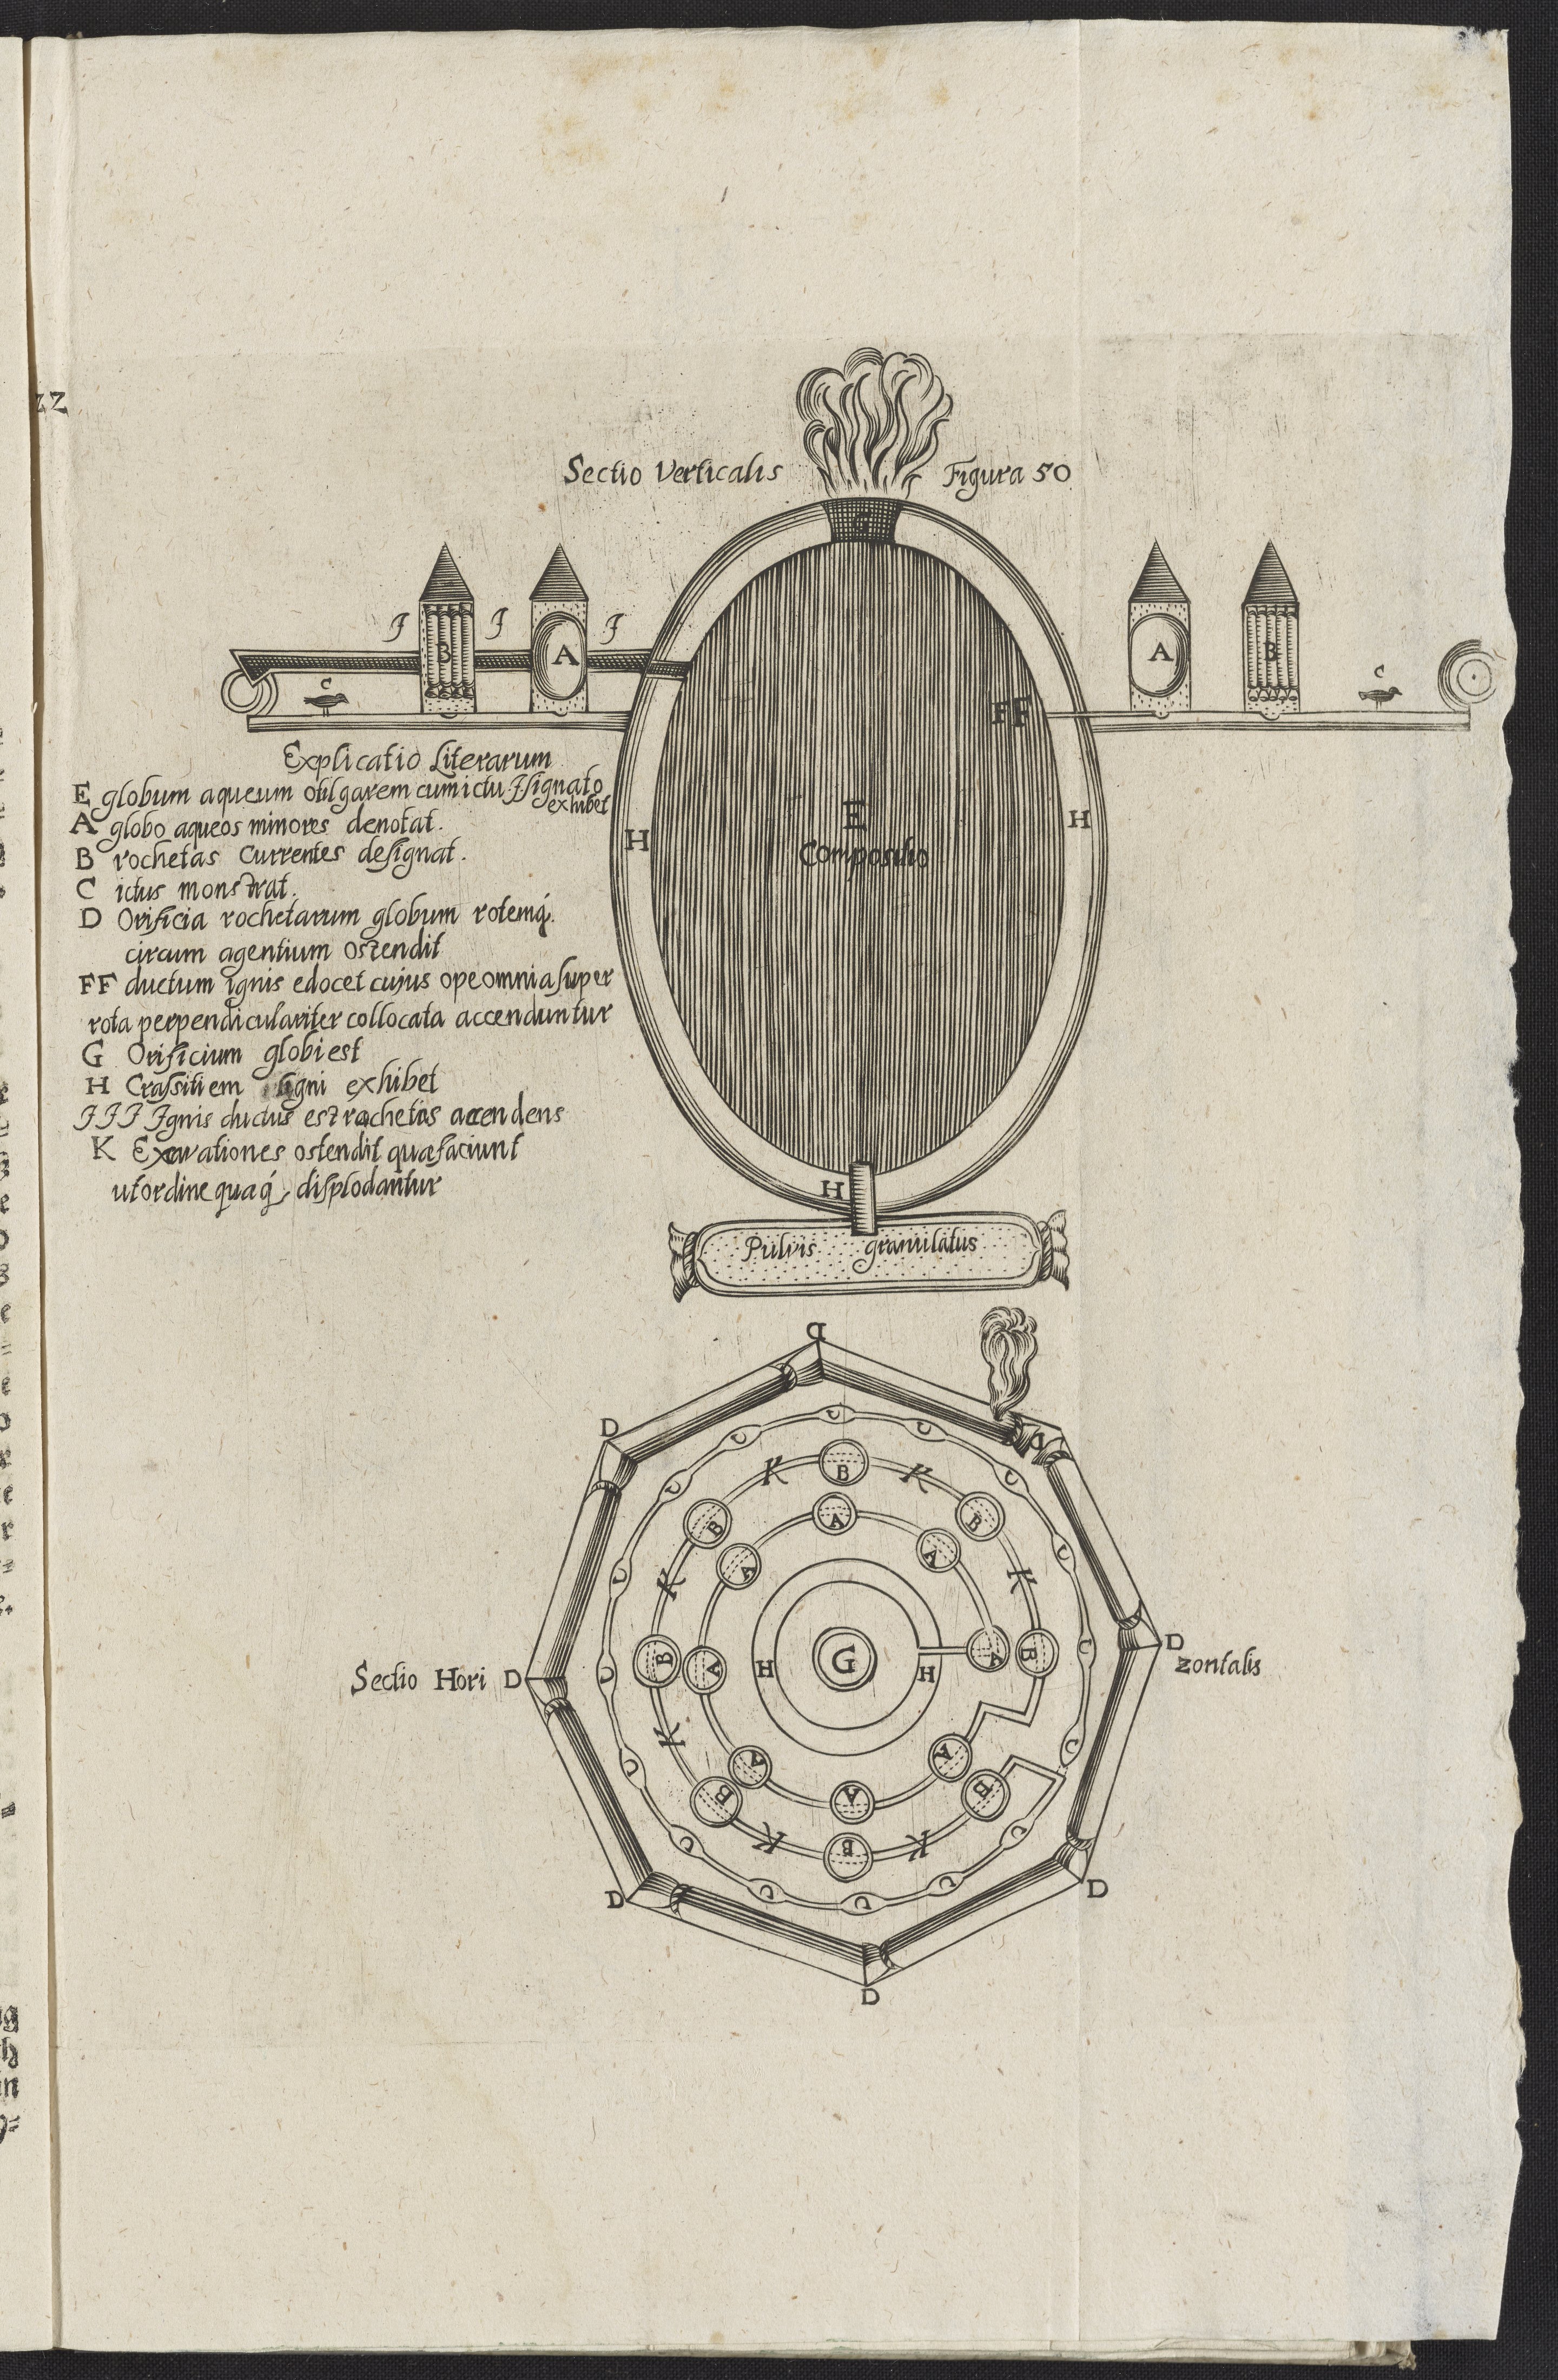 ZZ
Sectio Verticalis Figura 50
G
J J J
B A A B
C C
FF
Explicatio Literarum
E globum aqueum vulgarem cum ictu J signato
exhibet
A globo aqueos minores denotat.
B rochetas Currentes designat.
C ictus monstrat.
D Orificia rochetarum globum rotemq́.
circum agentium ostendit
FF ductum ignis edocet cujus ope omnia super
rota perpendiculariter collocata accenduntur
G Orificium globi est
H Crassitiem ligni exhibet
JJJ Ignis ductus est rochetas accendens
K Excavationes ostendit quæ faciunt
ut ordine quaq́, displodantur
H E H
Compositio
H
Pulvis granulatus
D
D D
C C C C
K B K
B A B
A A
K K
Sectio Hori D B A H G H A B D zontalis
K
A A
B A B
K B K
C C C C
D D
D